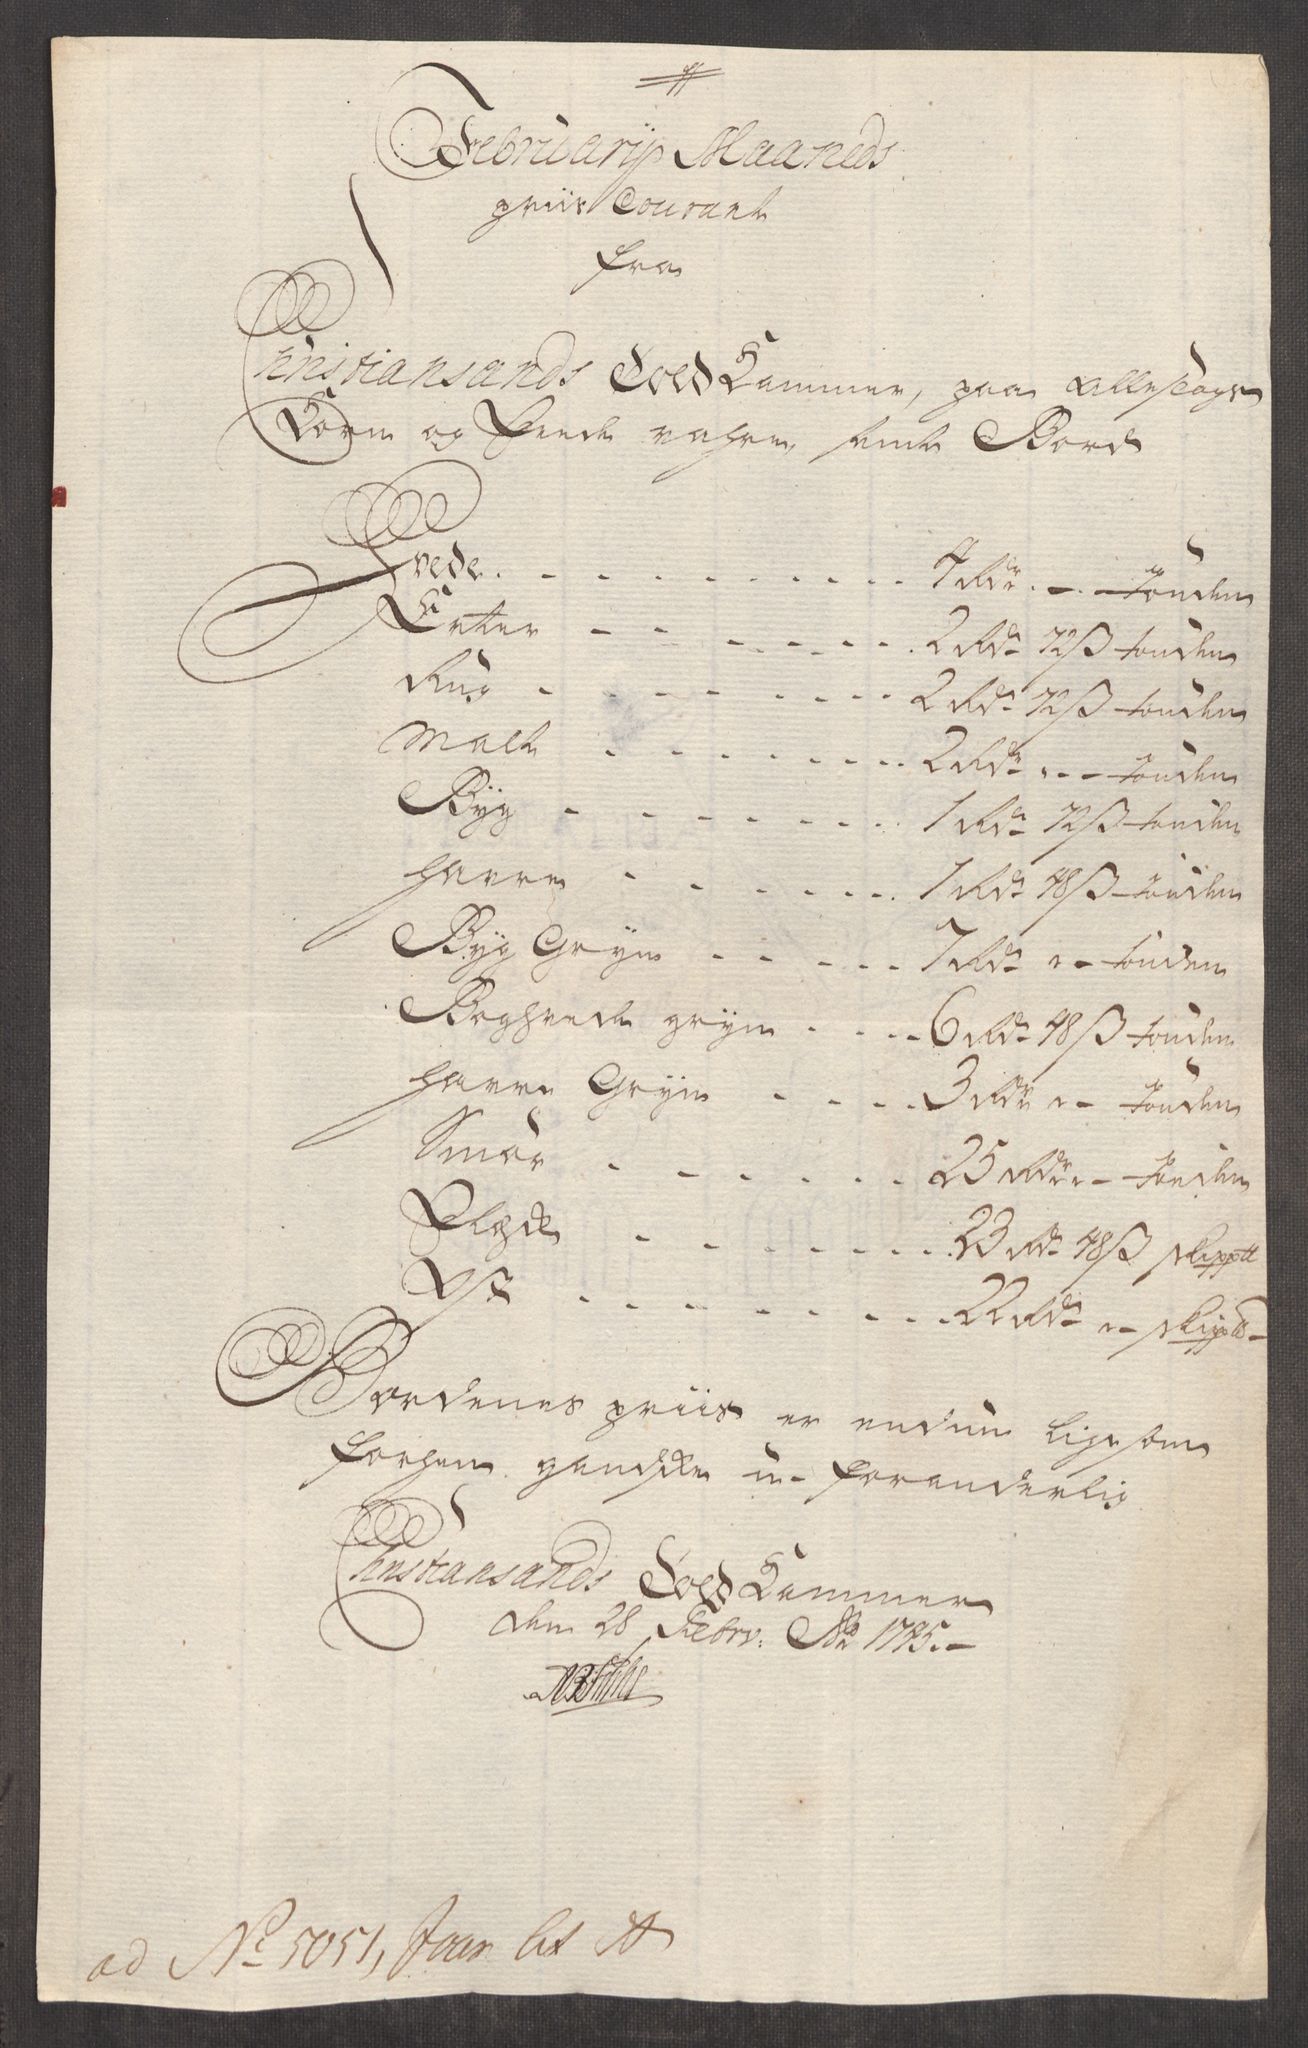 Februarij Maaneds
priis Courant
fra
Christiansands Told Kammer, paa alleslags
Korn og Feede vahre, samt Bord
Hvede 4 Rdr. - Tönden
Erter 2 Rdr 72 ß tönden
Rug 2 Rdr 72 ß tönden
Malt 2 Rdr - - tönden
Byg 1 Rdr 72 ß tönden
Havre 1 Rdr 48 ß tönden
Byg Gryn 7 Rdr - tönden
Boghvede gryn 6 Rdr 48 ß tönden
Havre Gryn 3 Rdr - tönden
Smör 25 Rdr - tönden
Flesk 23 Rdr 48 ß skippd
Ost 22 Rdr - skippd
Bordenes priis er endnu ligesom
forhen gandske u-foranderlig
Christiansands Told Kammer
den 28 Febrv: Ao 1785.
ad No 5051, Lit A